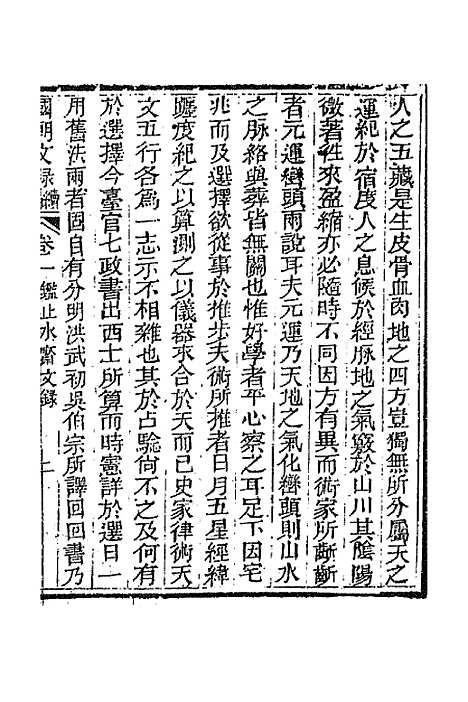 人之五藏是生皮骨血肉地之四方豈獨無所分屬天之
運紀於宿度人之息候於經脉地之氣竅於山川其陰陽
微著往來盈縮亦必隨時不同因方有異而術家所斷斷
者元運巒頭兩說耳夫元運乃天地之氣化巒頭則山水
之脉絡與葬皆無關也惟好學者平心察之耳足下因宅
兆而及選擇欲從事於推步夫術所推者日月五星經緯
躔度紀之以算測之以儀器求合於天而已史家律術天
文五行各爲一志示不相雜也其於占驗尙不之及何有
於選擇今臺官七政書出西士所算而時憲詳於選日一
用舊洪兩者固自有分明洪武初吳伯宗所譯回回書乃
國朝文錄續 卷一 鑑止水齋文錄